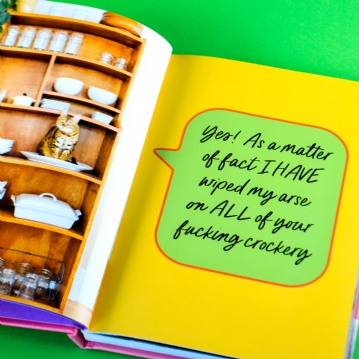 Yes! As a matter
of fact I HAVE
wiped my arse
on ALL of your
fucking crockery